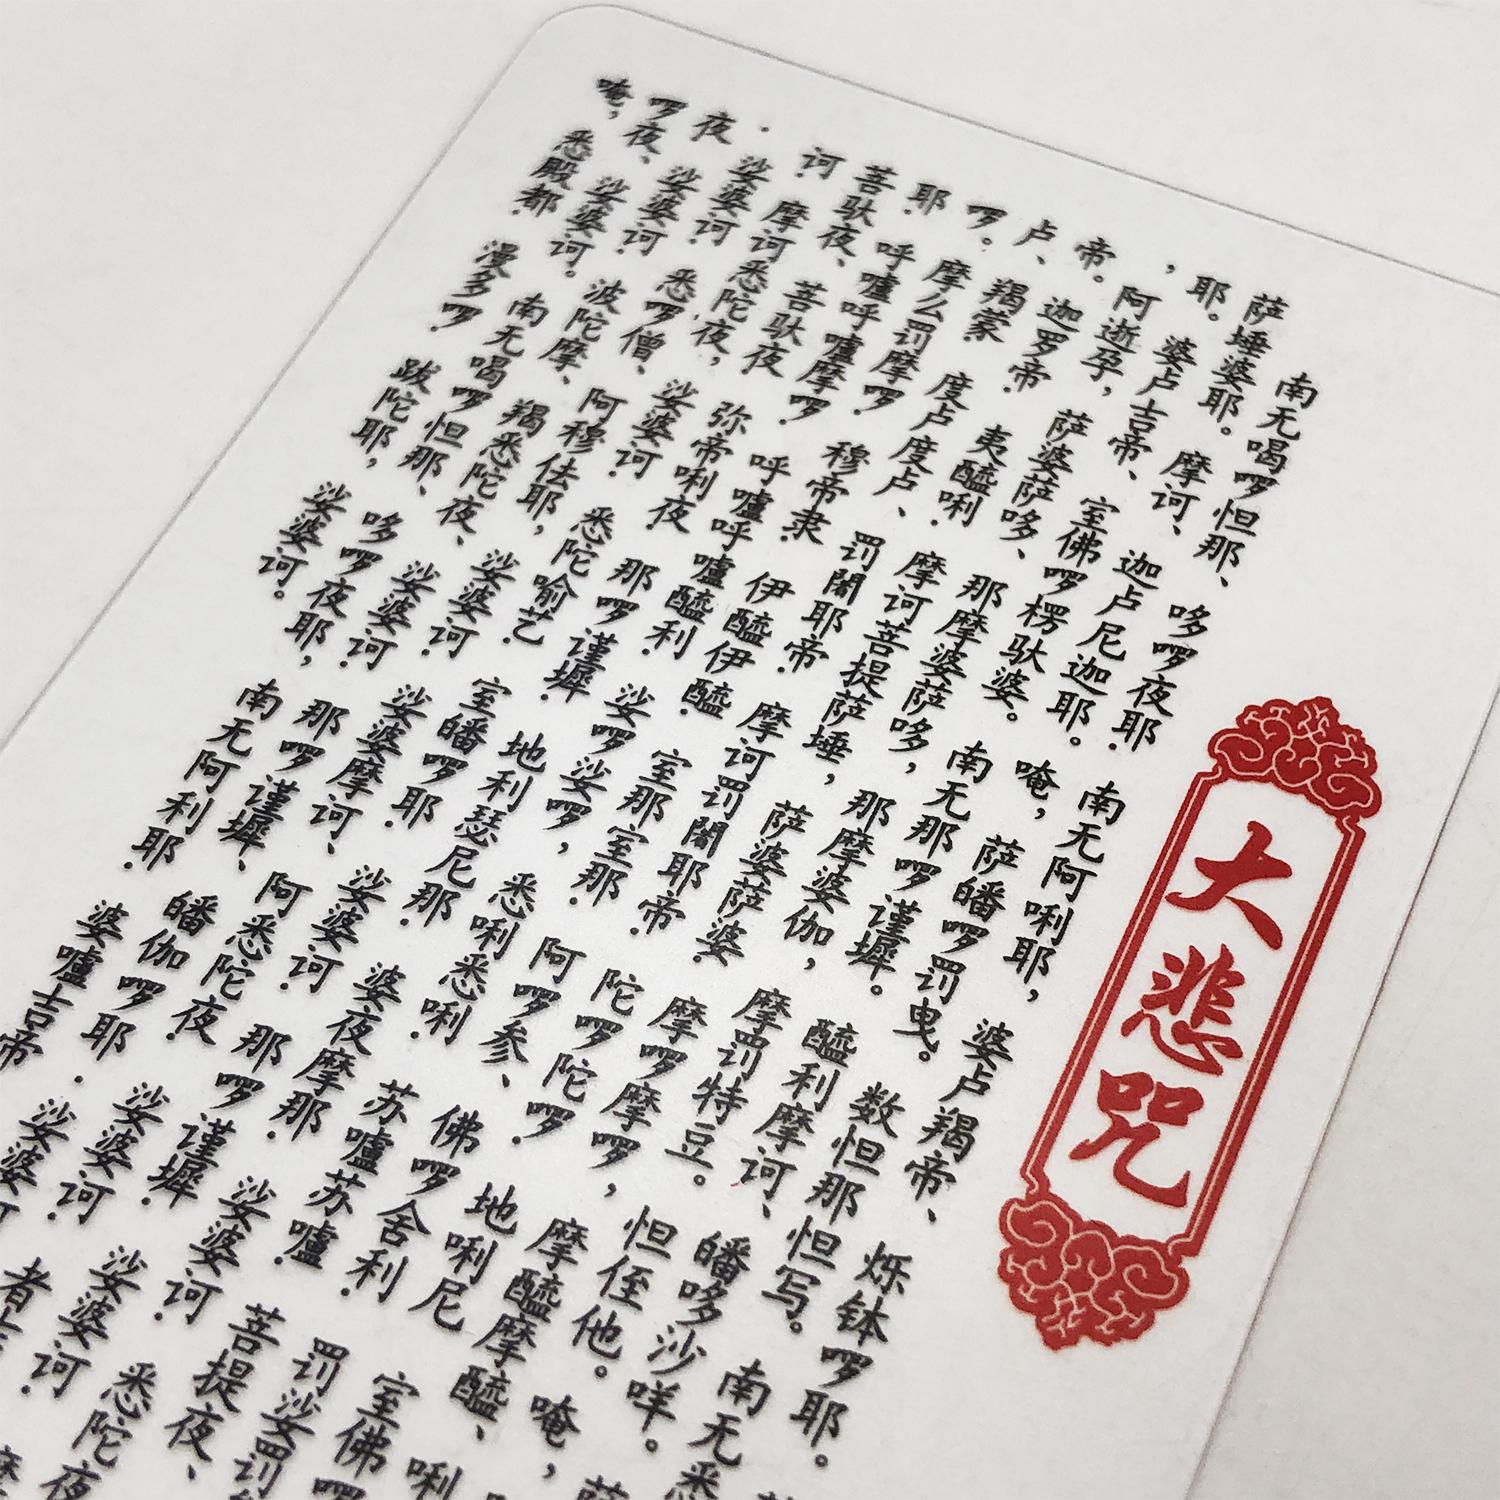 大悲咒
南无喝啰怛那、哆啰夜耶.南无阿唎耶,婆卢羯帝、烁钵啰耶。
萨埵婆耶。摩诃、迦卢尼迦耶。唵,萨皤啰罚曳。数怛那怛写。南无悉
耶。婆卢吉帝、室佛啰楞驮婆。南无那啰谨墀。醯利摩诃、皤哆沙咩。萨
,阿逝孕,萨婆萨哆、那摩婆萨哆,那摩婆伽,摩罚特豆。怛侄他。唵,
帝。迦罗帝.夷醯唎.摩诃菩提萨埵,萨婆萨婆.摩啰摩啰,摩醯摩醯、唎
卢、羯蒙.度卢度卢、罚阇耶帝.摩诃罚阇耶帝.陀啰陀啰.地唎尼.室佛啰
啰。摩么罚摩啰.穆帝隶.伊醯伊醯.室那室那.阿啰参、佛啰舍利.罚娑罚
耶.呼嚧呼嚧摩啰.呼嚧呼嚧醯利.娑啰娑啰,悉唎悉唎.苏嚧苏嚧.菩提夜、
菩驮夜、菩驮夜.弥帝唎夜.那啰谨墀.地利瑟尼那.婆夜摩那.娑婆诃.悉陀夜
诃.摩诃悉陀夜,娑婆诃.悉陀喻艺.室皤啰耶.娑婆诃.那啰谨墀.娑婆诃.
.娑婆诃.悉啰僧、阿穆佉耶,娑婆诃.娑婆摩诃、阿悉陀夜.娑婆诃.者
夜.娑婆诃.波陀摩、羯悉陀夜、娑婆诃.那啰谨墀、皤伽啰耶.娑婆诃
啰夜、娑婆诃。南无喝啰怛那、哆啰夜耶,南无阿利耶.婆嚧吉帝.
唵,悉殿都.漫多啰.跋陀耶,娑婆诃。